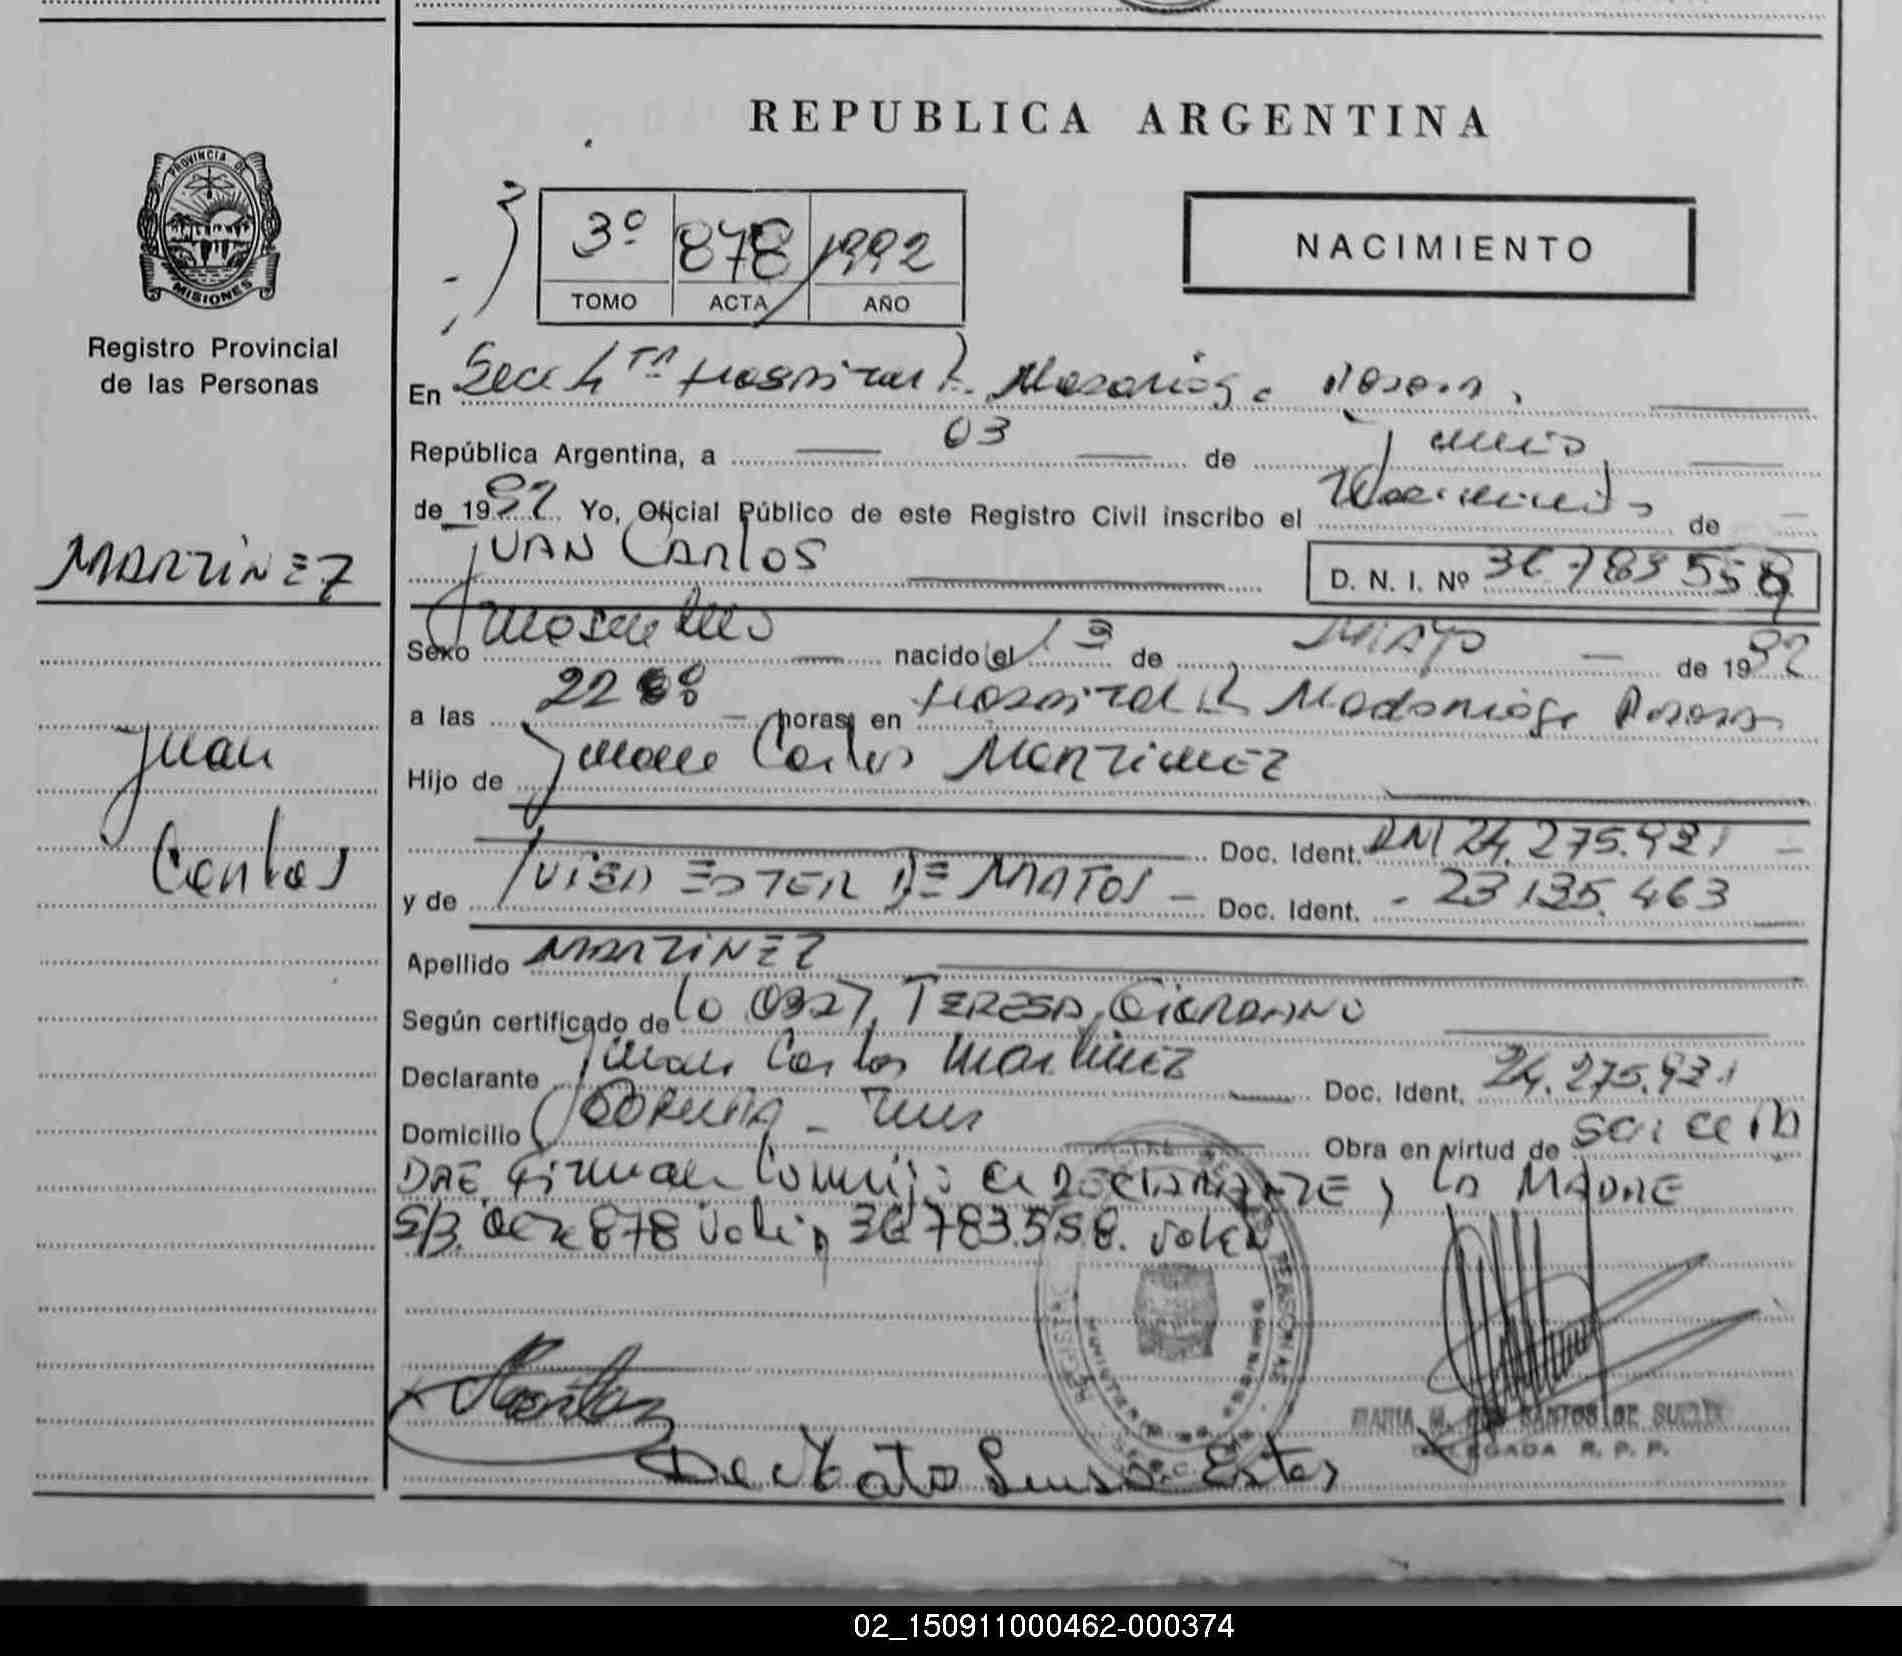 REPUBLICA ARGENTINA
PROVINCIA DE
MISIONES
Registro Provincial
de las Personas
3º 878 1992
TOMO ACTA AÑO
NACIMIENTO
En Secc 4ta Hospital R. Madariaga
República Argentina, a 03 de Junio
de 1992 Yo, Oficial Público de este Registro Civil inscribo el Nacimiento de
MARTINEZ
JUAN CARLOS D. N. I. Nº 36.783.558
Sexo Masculino nacido el de MAYO de 1992
a las 22 horas, en Hospital R Madariaga Posadas
Juan
Carlos
Hijo de Juan Carlos MARTINEZ
Doc. Ident. DNI 24.275.921
y de LUISA ESTER DE MATOS Doc. Ident. 23.135.463
Apellido MARTINEZ
Según certificado de TERESA GIORDANO
Declarante Juan Carlos Martinez Doc. Ident. 24.275.921
Domicilio Obra en virtud de
Firman Conmigo el DECLARANTE y la MADRE
S/B. 878 vale 36.783.558. vale
De Mato Luisa Ester
MARIA M. DOS SANTOS DE
DELEGADA R. P. P.
02_150911000462-000374